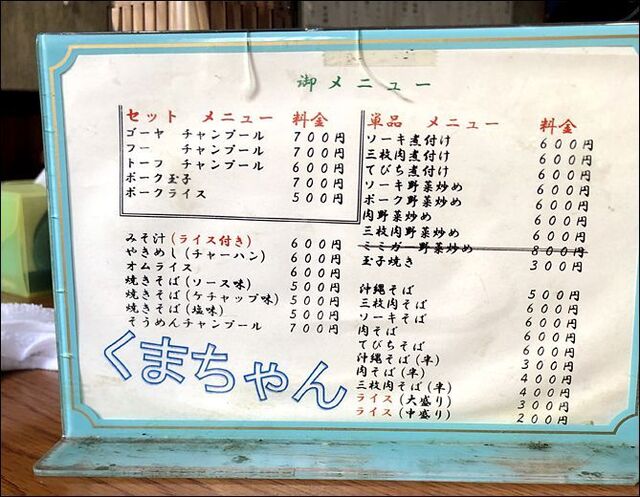 御メニュー
セット メニュー 料金
ゴーヤ チャンプール 700円
フー チャンプール 700円
トーフ チャンプール 600円
ポーク玉子 700円
ポークライス 500円
みそ汁(ライス付き) 600円
やきめし(チャーハン) 600円
オムライス 600円
焼きそば(ソース味) 500円
焼きそば(ケチャップ味) 500円
焼きそば(塩味) 500円
そうめんチャンプール 700円
くまちゃん
単品 メニュー 料金
ソーキ煮付け 600円
三枚肉煮付け 600円
てびち煮付け 600円
ソーキ野菜炒め 600円
ポーク野菜炒め 600円
肉野菜炒め 600円
三枚肉野菜炒め 600円
ミミガー野菜炒め 800円
玉子焼き 300円
沖縄そば 500円
三枚肉そば 600円
ソーキそば 600円
肉そば 600円
てびちそば 600円
沖縄そば(半) 300円
肉そば(半) 400円
三枚肉そば(半) 400円
ライス(大盛り) 300円
ライス(中盛り) 200円